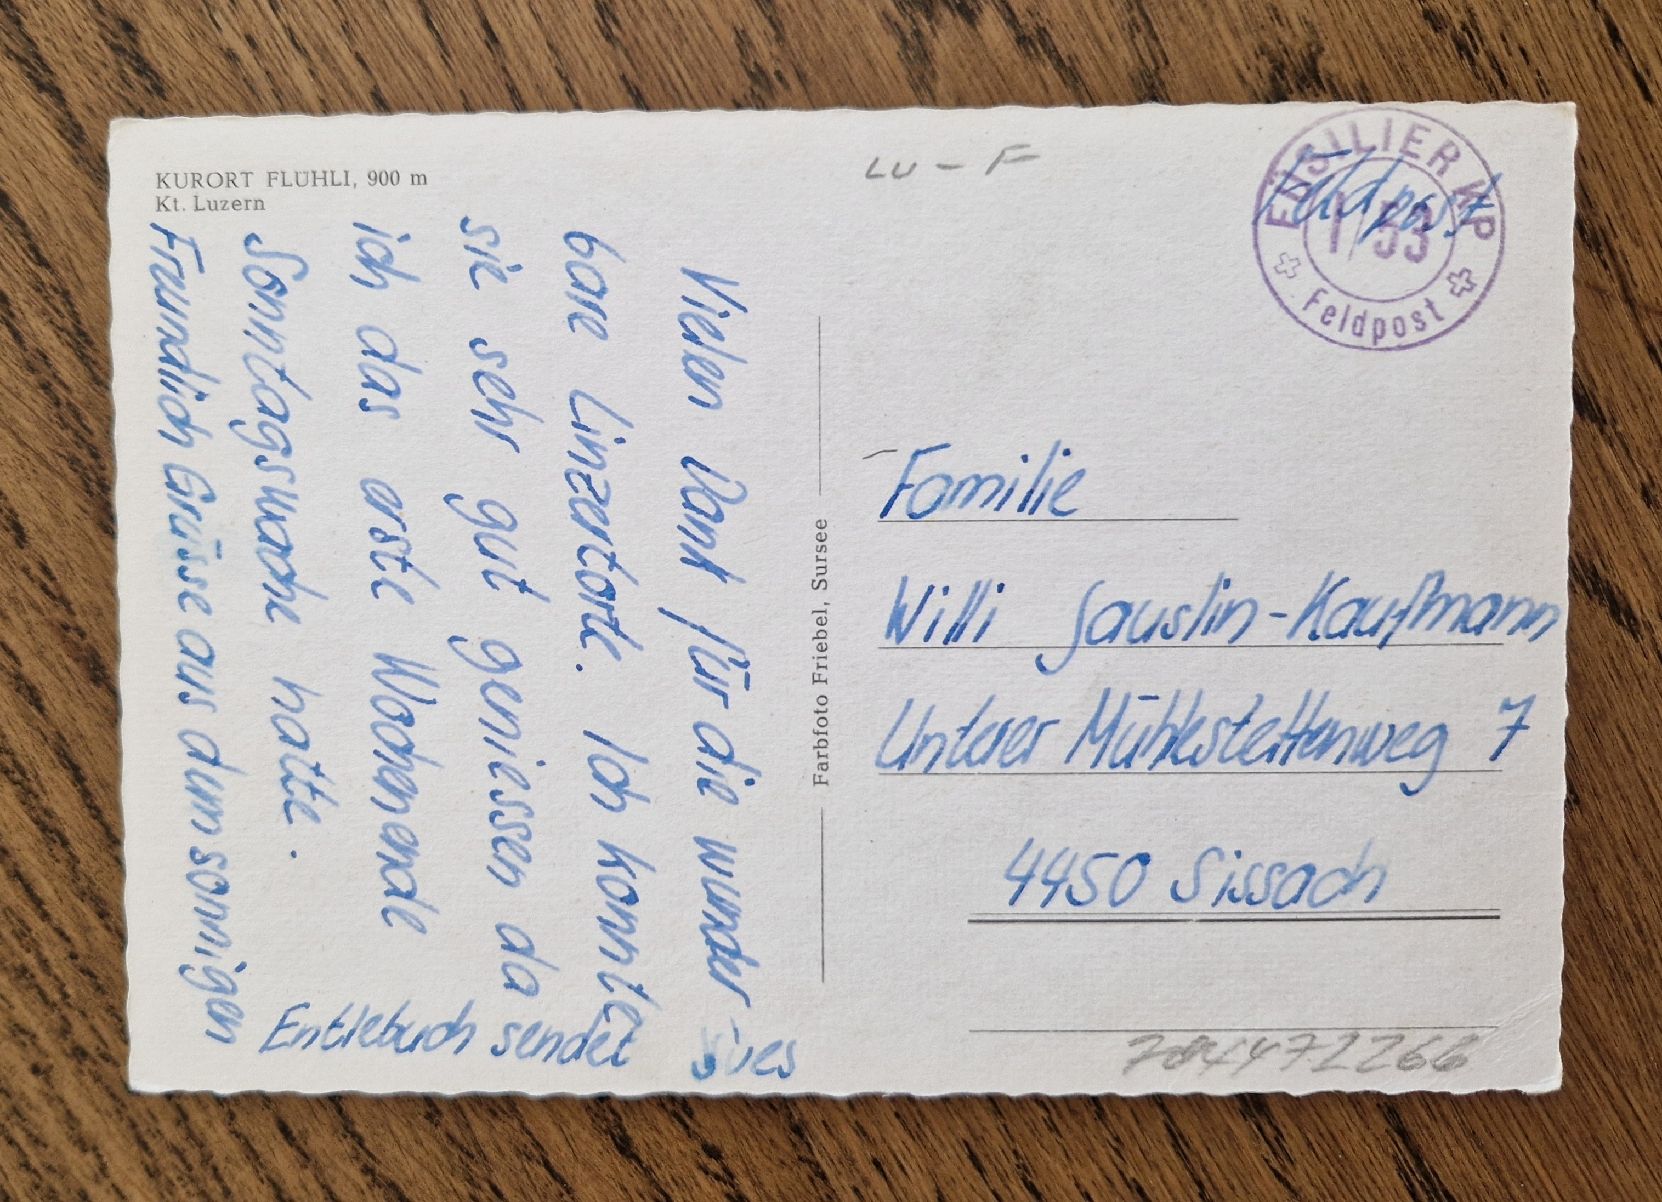 KURORT FLÜHLI, 900 m
Kt. Luzern
Vielen Dank für die wunder-
bare Linzertorte. Ich konnte
sie sehr gut geniessen da
ich das erste Wochenende
Sonntagswache hatte.
Freundlich Grüsse aus dem sonnigen
Entlebuch sendet
Farbfoto Friebel, Sursee
LU - F
Feldpost
FÜSILIER KP
I/53
Feldpost
Familie
Willi Sauslin-Kaufmann
Unterer Mühlestettenweg 7
4450 Sissach